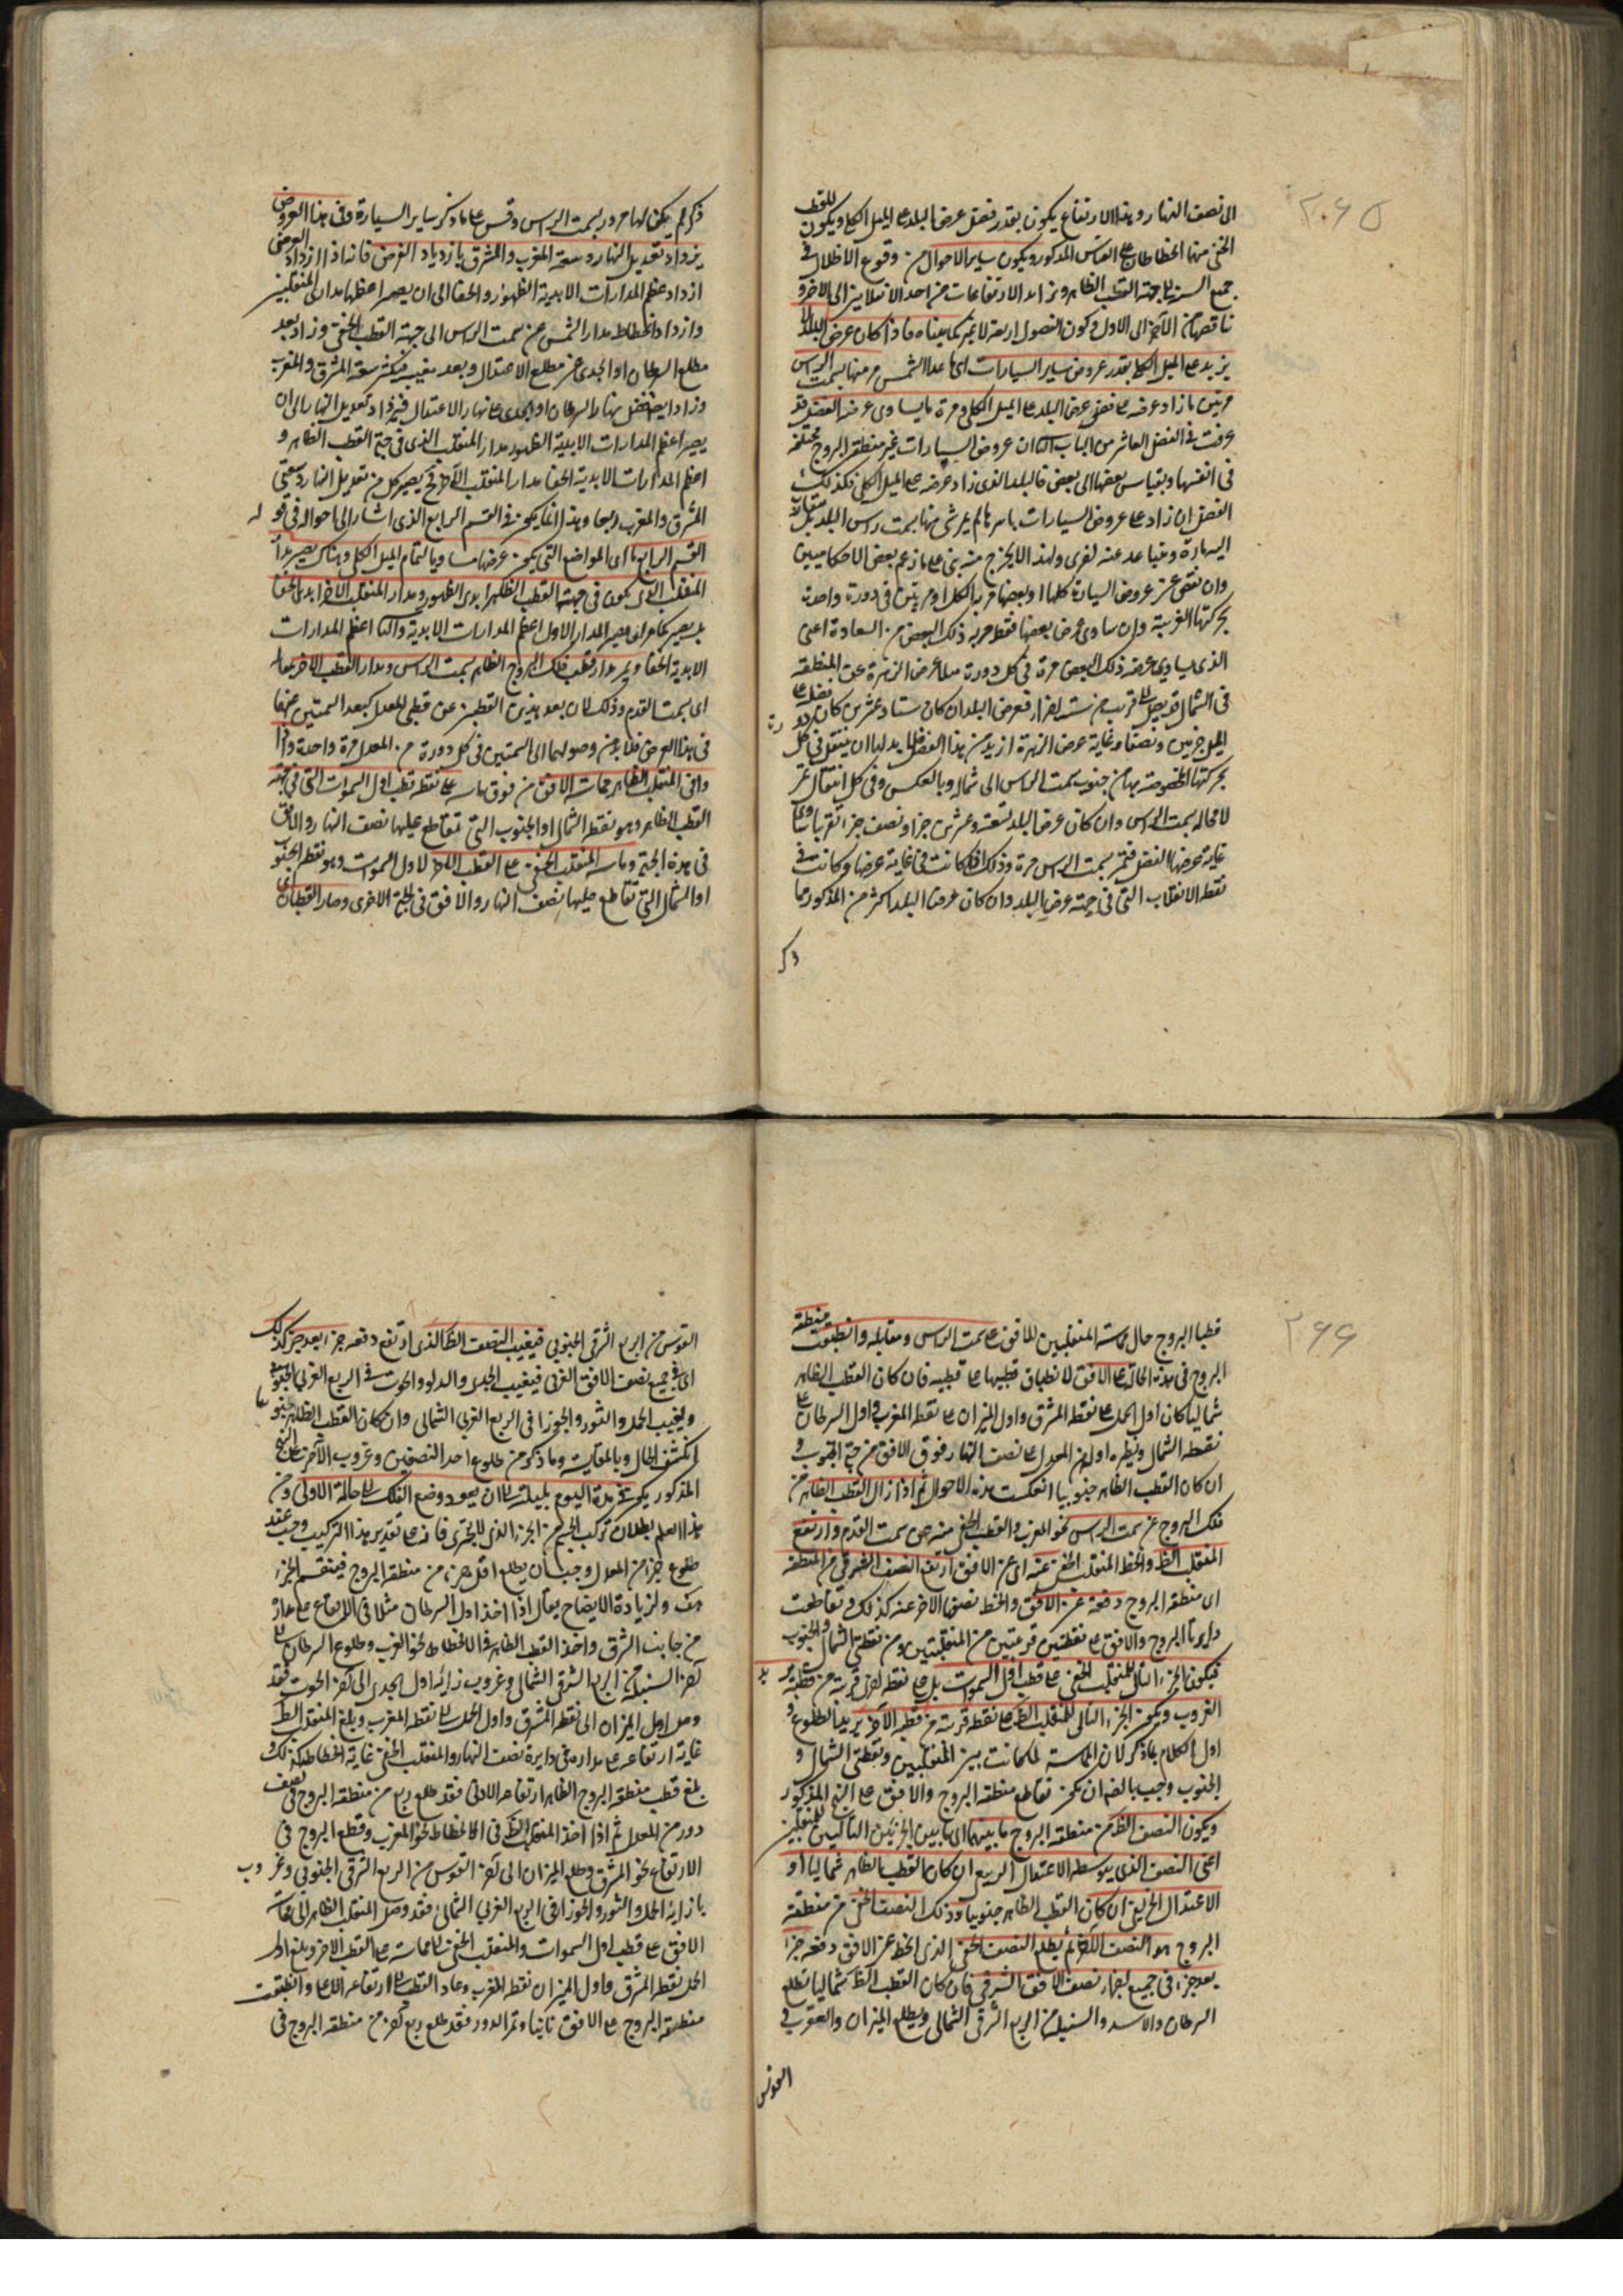 ٢٠٦٥
الى نصف النهار وهذا الارتفاع يكون بقدر فضل عرض البلد على الميل الكلي ويكون للقطب
الخفي منها انحطاطان على القياس المذكور ويكون ساير الاحوال من وقوع الاظلال في
جميع السنة الى جهة القطب الظاهر وتزايد الارتفاعات من احد الانقلابين الى الآخر و
تناقصها من الآخر الى الاول وكون الفصول اربعة لا غير كما بيناه فاذا كان عرض البلد
يزيد على الميل الكلي بقدر عروض ساير السيارات اى ما عدا الشمس مر منها بسمت الراس
مرتين ما زاد عرضه على فضل عرض البلد على الميل الكلي ومرة ما يساوى عرضه الفضل قد
عرفت في الفصل العاشر من الباب الثانى ان عروض السيارات غير منطقة البروج مختلفة
في انفسها وبقياس بعضها الى بعض فالبلد الذى زاد عرضه على الميل الكلي فذلك
الفضل ان زاد على عروض السيارات باسرها لم يمر شى منها بسمت راس البلد بل
السيارة وتباعد عنه اخرى ولهذا لا يخرج منه نبى على ما زعم بعض الاحكاميين
وان نقص عن عروض السيارة كلها او بعضها مر به الكل او مرتين في دورة واحدة
بحركتها الغربية وان ساوى عرض بعضها فقط مر به ذلك البعض من السيارة اعنى
الذى يساوى عرضه ذلك البعض مرة في كل دورة مثلا عرض الزهرة عن المنطقة
في الشمال قد يصل الى قريب من ستة اجزاء فعرض البلد ان كان ستا وعشرين كان فضله على
الميل جزئين ونصفا وغاية عرض الزهرة ازيد من هذا الفضل فلا بد لها ان ينتقل في كل
بحركتها المخصوصة بها من جنوب سمت الراس الى شماله وبالعكس وفي كل انتقال تمر
لا محاله بسمت الراس وان كان عرض البلد تسعة وعشرين جزا ونصف جزء تقريبا ساوى
غاية عرضها الفضل فتمر بسمت الراس مرة وذلك اذا كانت في غاية عرضها وكانت في
نقطة الانقلاب التى في جهة عرض البلد وان كان عرض البلد اكثر من المذكور مما
ذكر
ذكر لم يكن لها مرور بسمت الراس وقس على ما ذكر ساير السيارة وفي هذا العروض
يزداد تعديل النهار وسعة المغرب والمشرق بازدياد العرض فانه اذا ازداد العرض
ازداد عظم المدارات الابدية الظهور والخفا الى ان يصير اعظمها مدارى المنقلبين
وازداد انحطاط مدار الشمس عن سمت الراس الى جهة القطب الخفي وزاد بعد
مطلع السرطان او الجدى عن مطلع الاعتدال وبعد مغيبه فتكثر سعة المشرق والمغرب
وزاد ايضا فضل نهار السرطان او الجدى على نهار الاعتدال فيزداد تعديل النهار الى ان
يصير اعظم المدارات الابدية الظهور مدار المنقلب الذى في جهة القطب الظاهر و
اعظم المدارات الابدية الخفا مدار المنقلب الآخر فح يصير كل من تعديل النهار وسعتى
المشرق والمغرب ربعا وهذا انما يكون في القسم الرابع الذى اشار الى احواله في قوله
القسم الرابع ما اى المواضع التى يكون عرضها مساويا لتمام الميل الكلي وهناك يصير مدار
المنقلب الذى يكون في جهة القطب الظاهر ابدى الظهور ومدار المنقلب الآخر ابدى الخفا
بل يصير كما عرفت المدار الاول اعظم المدارات الابدية والثانى اعظم المدارات
الابدية الخفا ويمر مدار قطب فلك البروج الظاهر بسمت الراس ومدار القطب الاخر بمقابله
اى بسمت القدم وذلك لان بعد هذين القطبين عن قطبى المعدل كبعد السمتين عنهما
في هذا العرض فلا بد من وصولهما الى السمتين في كل دورة من المعدل مرة واحدة واذا
وافى المنقلب الظاهر مماسة الافق من فوق ماسه على نقطة قطب اول السموات التى في جهة
القطب الظاهر وهو نقطة الشمال او الجنوب التى تقاطع عليها نصف النهار والافق
في هذه الجهة وماسه المنقلب الخفي على القطب الآخر لاول السموات وهو نقطة الجنوب
او الشمال التى تقاطع عليها نصف النهار والافق في الجهة الاخرى وصار القطبان
٢٦٦
قطبا البروج حال مماسة المنقلبين للافق على سمت الراس ومقابله وانطبقت منطقة
البروج في هذه الحالة على الافق لانطباق قطبيها على قطبيه فان كان القطب الظاهر
شماليا كان اول الحمل على نقطة المشرق واول الميزان على نقطة المغرب واول السرطان على
نقطة الشمال ونظيره اول الجدى على نصف النهار فوق الافق من جهة الجنوب و
ان كان القطب الظاهر جنوبيا انعكست هذه الاحوال ثم اذا زال القطب الظاهر من
فلك البروج عن سمت الراس نحو المغرب والقطب الخفي منه عن سمت القدم وارتفع
المنقلب الظ وانحط المنقلب الخفي عنه اى عن الافق ارتفع النصف الشرقي من المنطقة
اى منطقة البروج دفعة عن الافق وانحط نصفها الآخر عنه كذلك وتقاطعت
دايرتا البروج والافق على نقطتين قريبتين من المنقلبين ومن نقطتى الشمال والجنوب
فيكون الجزء التالى للمنقلب الخفي على قطب اول السموات بل على نقطة اخرى قريبة من قطبه يريد به
الغروب ويكون الجزء التالى للمنقلب الظ على نقطة قريبة من قطبه الآخر يريد الطلوع و
اول الكلام بما ذكر لان المماسة لما كانت بين المنقلبين ونقطتى الشمال و
الجنوب وجب بالضران يكون تقاطع منطقة البروج والافق على النهج المذكور
ويكون النصف الظ من منطقة البروج ما بينهما اى ما بين الجزئين التاليين للمنقلبين
اعنى النصف الذى يتوسطه الاعتدال الربيعى ان كان القطب الظاهر شماليا او
الاعتدال الخريفى ان كان القطب الظاهر جنوبيا وذلك النصف الخفى من منطقة
البروج هو النصف الآخر ثم يطلع النصف الخفى الذى انحط عن الافق دفعة جزءا
بعد جزء في جميع اجزاء نصف الافق الشرقى فان كان القطب الظ شماليا تطلع
السرطان والاسد والسنبلة من الربع الشرقى الشمالى ويطلع الميزان والعقرب و
القوس
القوس من الربع الشرقى الجنوبى فيغيب النصف الظ الذى ارتفع دفعه جزء بعد جزء كذلك
اى في جميع نصف الافق الغربى فيغيب الجدى والدلو والحوت في الربع الغربى الجنوبى
ويغيب الحمل والثور والجوزا في الربع الغربى الشمالى وان كان القطب الظاهر جنوبيا
انكشف الحال وبالمقايسة وما ذكر من طلوع احد النصفين وغروب الآخر على النهج
المذكور يكون في مدة اليوم بليلته الى ان يعود وضع الفلك الى حالة الاولى ومن
هذا يعلم بطلان تركب الجسم من الجزء الذى لا يتجزى فان على تقدير هذا التركيب وجب عند
طلوع جزء من المعدل وجب ان يطلع اقل جزء من منطقة البروج فينقسم الجزء
هف ولزيادة الايضاح يقال اذا اخذ اول السرطان مثلا في الارتفاع على مداره
من جانب الشرق واخذ القطب الظاهر في الانحطاط نحو الغرب وطلوع السرطان الى
آخر السنبلة من الربع الشرقى الشمالى وغروب نظائر اول الجدى الى آخر الحوت فقد
وصل اول الميزان الى نقطة المشرق واول الحمل الى نقطة المغرب وبلغ المنقلب الظ
غاية ارتفاعه على مداره في دايرة نصف النهار والمنقلب الخفى غاية انحطاطه كذلك و
بلغ قطب منطقة البروج الظاهر ارتفاعه الادنى فقد طلع ربع من منطقة البروج في نصف
دور من المعدل ثم اذا اخذ المنقلب الظ في الانحطاط نحو المغرب وقطب البروج في
الارتفاع نحو المشرق وطلع الميزان الى آخر القوس من الربع الشرقى الجنوبى وغروب
بازائه الحمل والثور والجوزا في الربع الغربى الشمالى فقد وصل المنقلب الظاهر الى مماسة
الافق على قطب اول السموات والمنقلب الخفى الى مماسة على القطب الآخر وبلغ اول
الحمل نقطة المشرق واول الميزان نقطة المغرب وعاد القطب الى ارتفاعه الاعلى وانطبقت
منطقة البروج على الافق ثانيا وتم الدور فقد طلع ربع آخر من منطقة البروج في